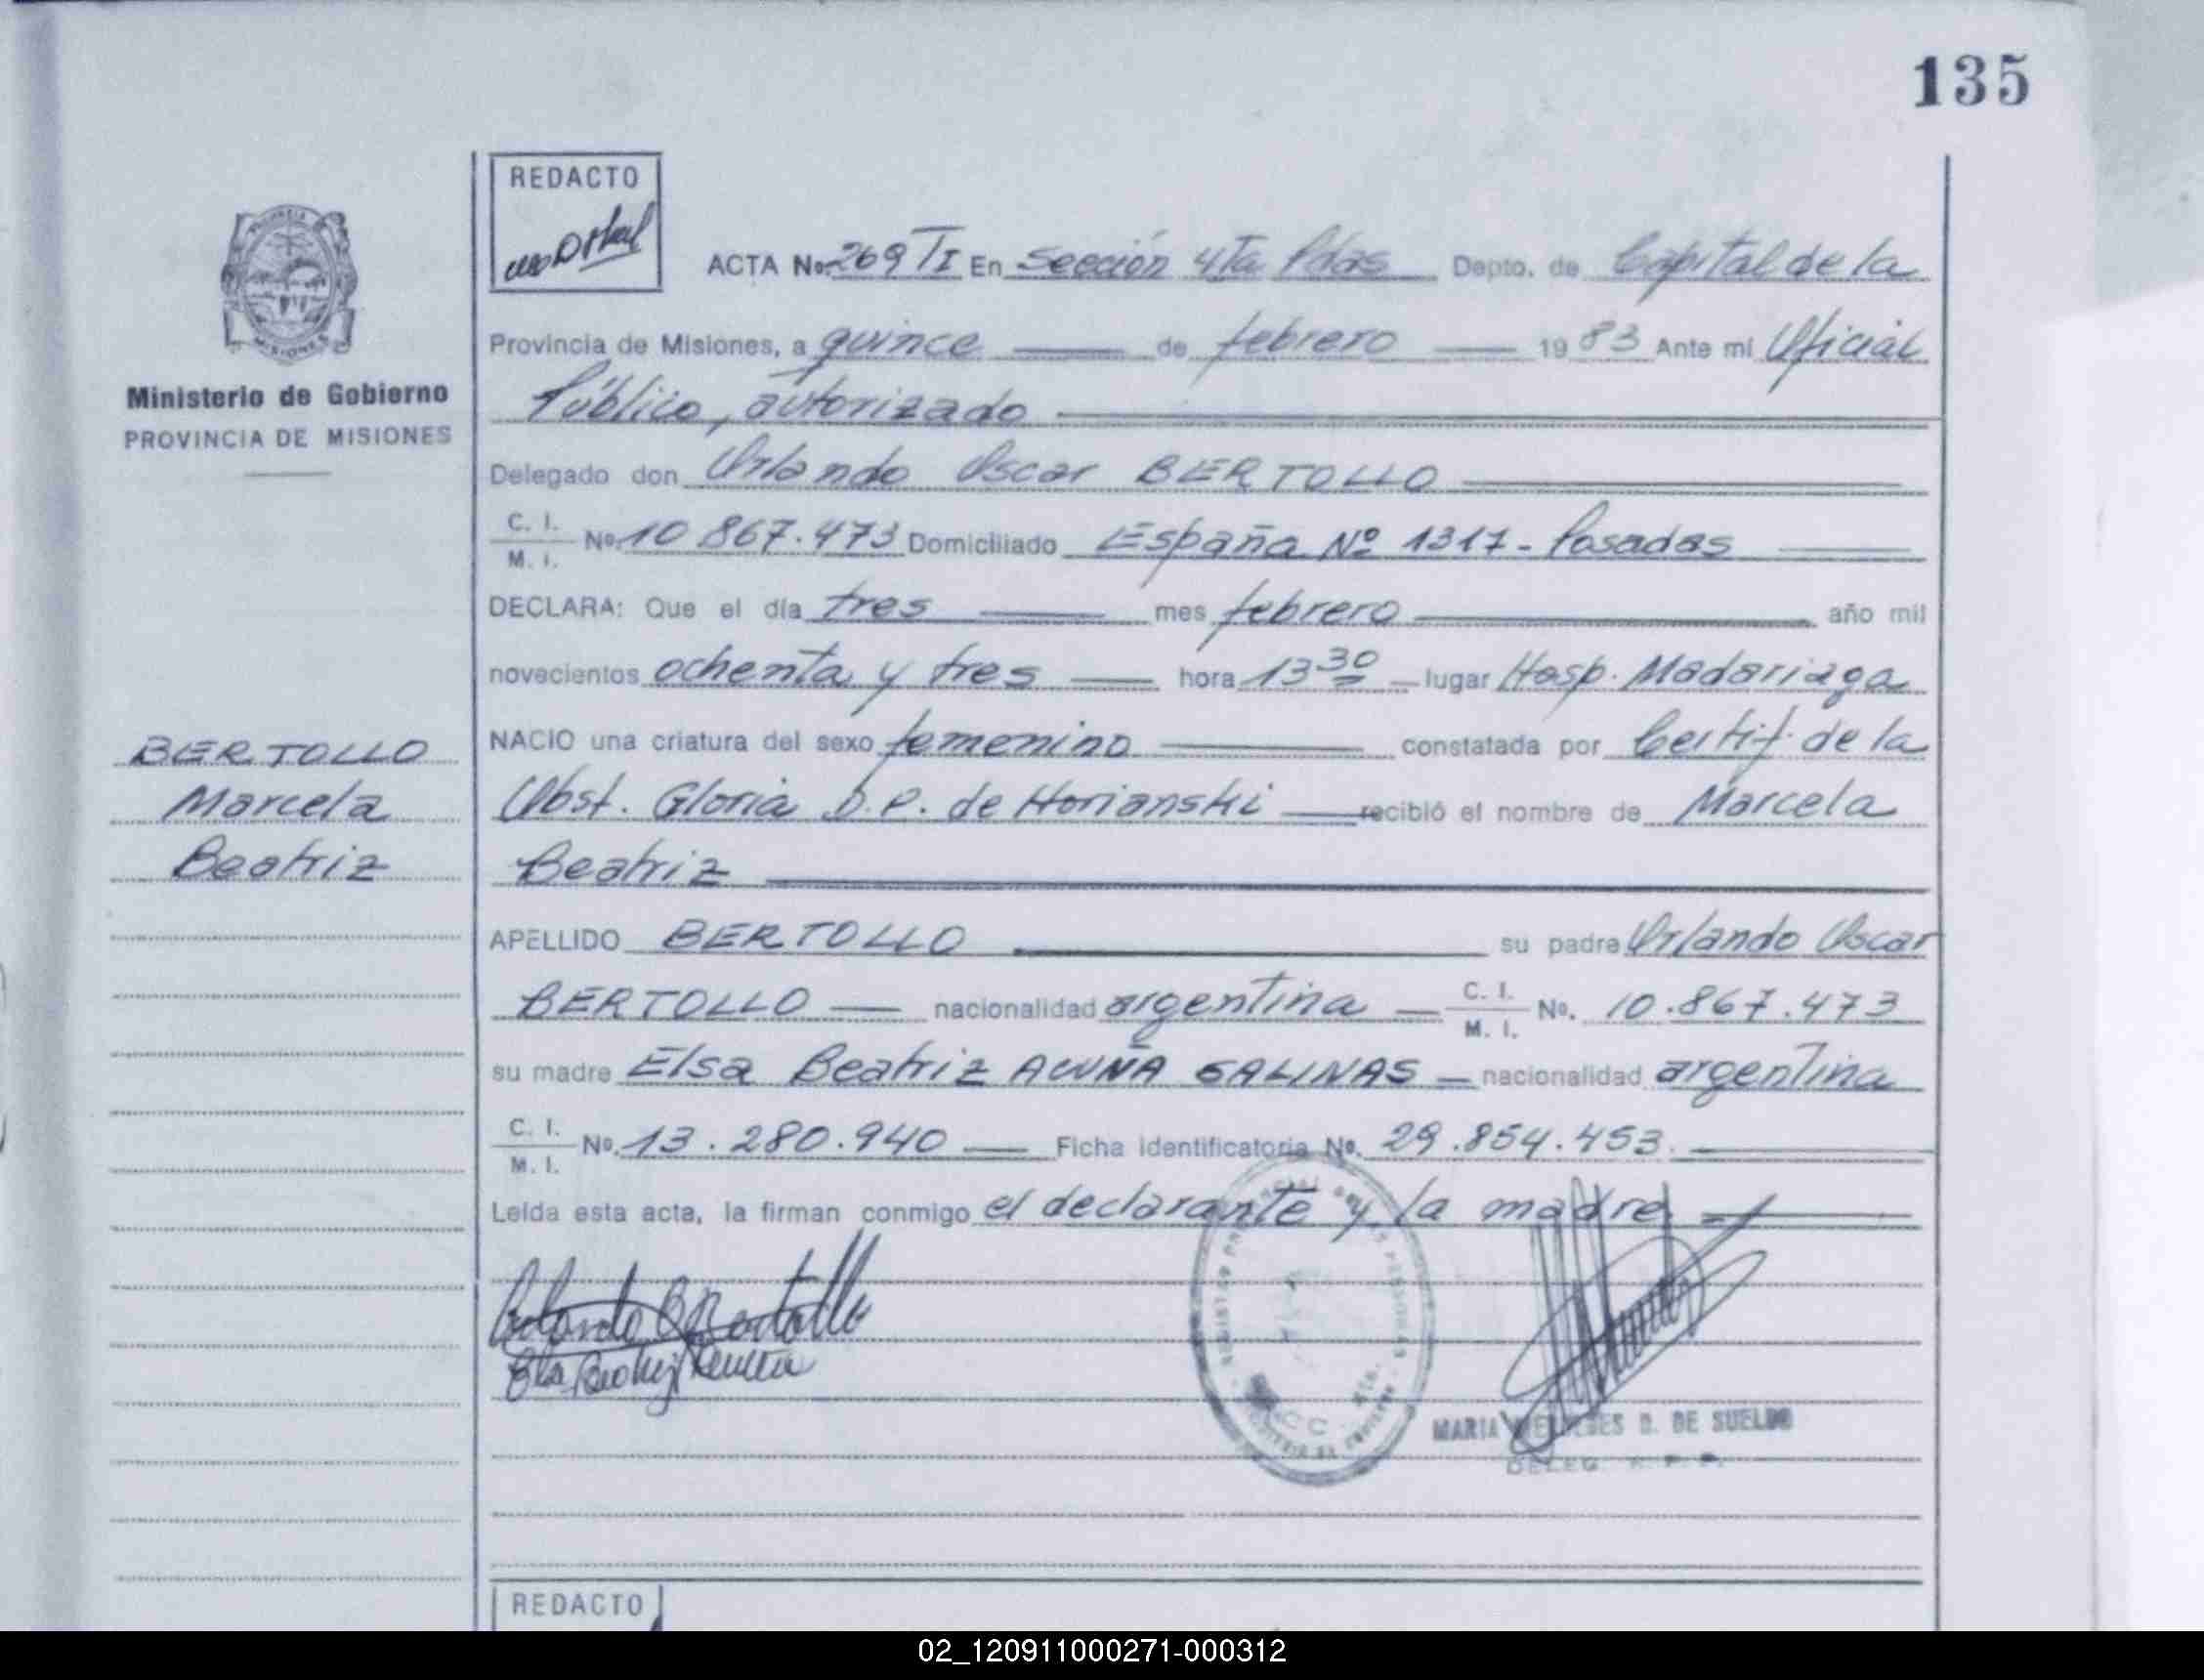 135
REDACTO
ACTA No. 269 TI En Sección 4Ta Pdas Depto. de Capital de la
Provincia de Misiones, a quince de febrero 1983 Ante mí Oficial
Público, autorizado
Ministerio de Gobierno
PROVINCIA DE MISIONES
Delegado don Orlando Oscar BERTOLLO
C. I. / M. I. No. 10 867.473 Domiciliado España Nº 1317 - Posadas
DECLARA: Que el día tres mes febrero año mil
novecientos ochenta y tres hora 13 30 lugar Hosp. Madariaga
BERTOLLO
Marcela
Beatriz
NACIO una criatura del sexo femenino constatada por Certif. de la
Obst. Gloria D. P. de Horianski recibió el nombre de Marcela
Beatriz
APELLIDO BERTOLLO su padre Orlando Oscar
BERTOLLO nacionalidad argentina C. I. / M. I. No. 10.867.473
su madre Elsa Beatriz ACUÑA SALINAS nacionalidad argentina
C. I. / M. I. No. 13.280.940 Ficha Identificatoria No. 29.854.453.
Leída esta acta, la firman conmigo el declarante y la madre
MARIA D. DE SUELDO
DELEG.
REDACTO
02_120911000271-000312